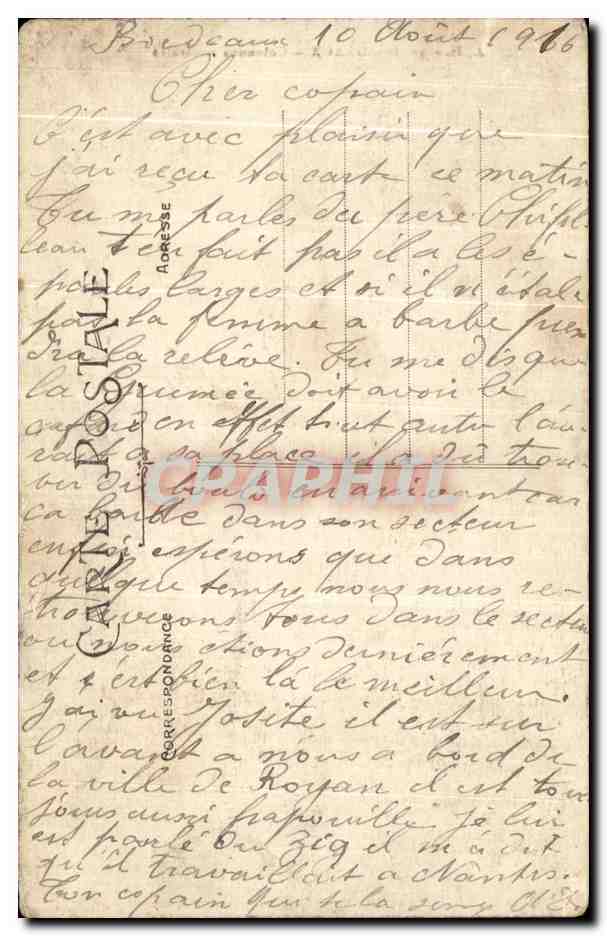 Bordeaux 10 Août 1916
Cher copain
C'est avec plaisir que
j'ai reçu ta carte ce matin
Tu me parles du père
t'en fait pas il a les é-
paules larges et si il n'était
pas la femme a barbe
dra la relève. Tu me dis que
la doit avoir le
en effet tout autre l'au-
rait a sa place il a dû trou-
ver du boulo en arrivant car
ca barde dans son secteur
enfin espérons que dans
quelque temps nous nous re-
trouverons tous dans le secteur
ou nous étions dernièrement
et c'est bien là le meilleur.
J'ai vu Josite il est sur
l'avant a nous a bord de
la ville de Royan il est tou
jours aussi frapouille je lui
est parlé du zig il m'a dit
qu'il travaillait a Nantes.
Ton copain qui te la
CARTE POSTALE
ADRESSE
CORRESPONDANCE
CPAPHIL